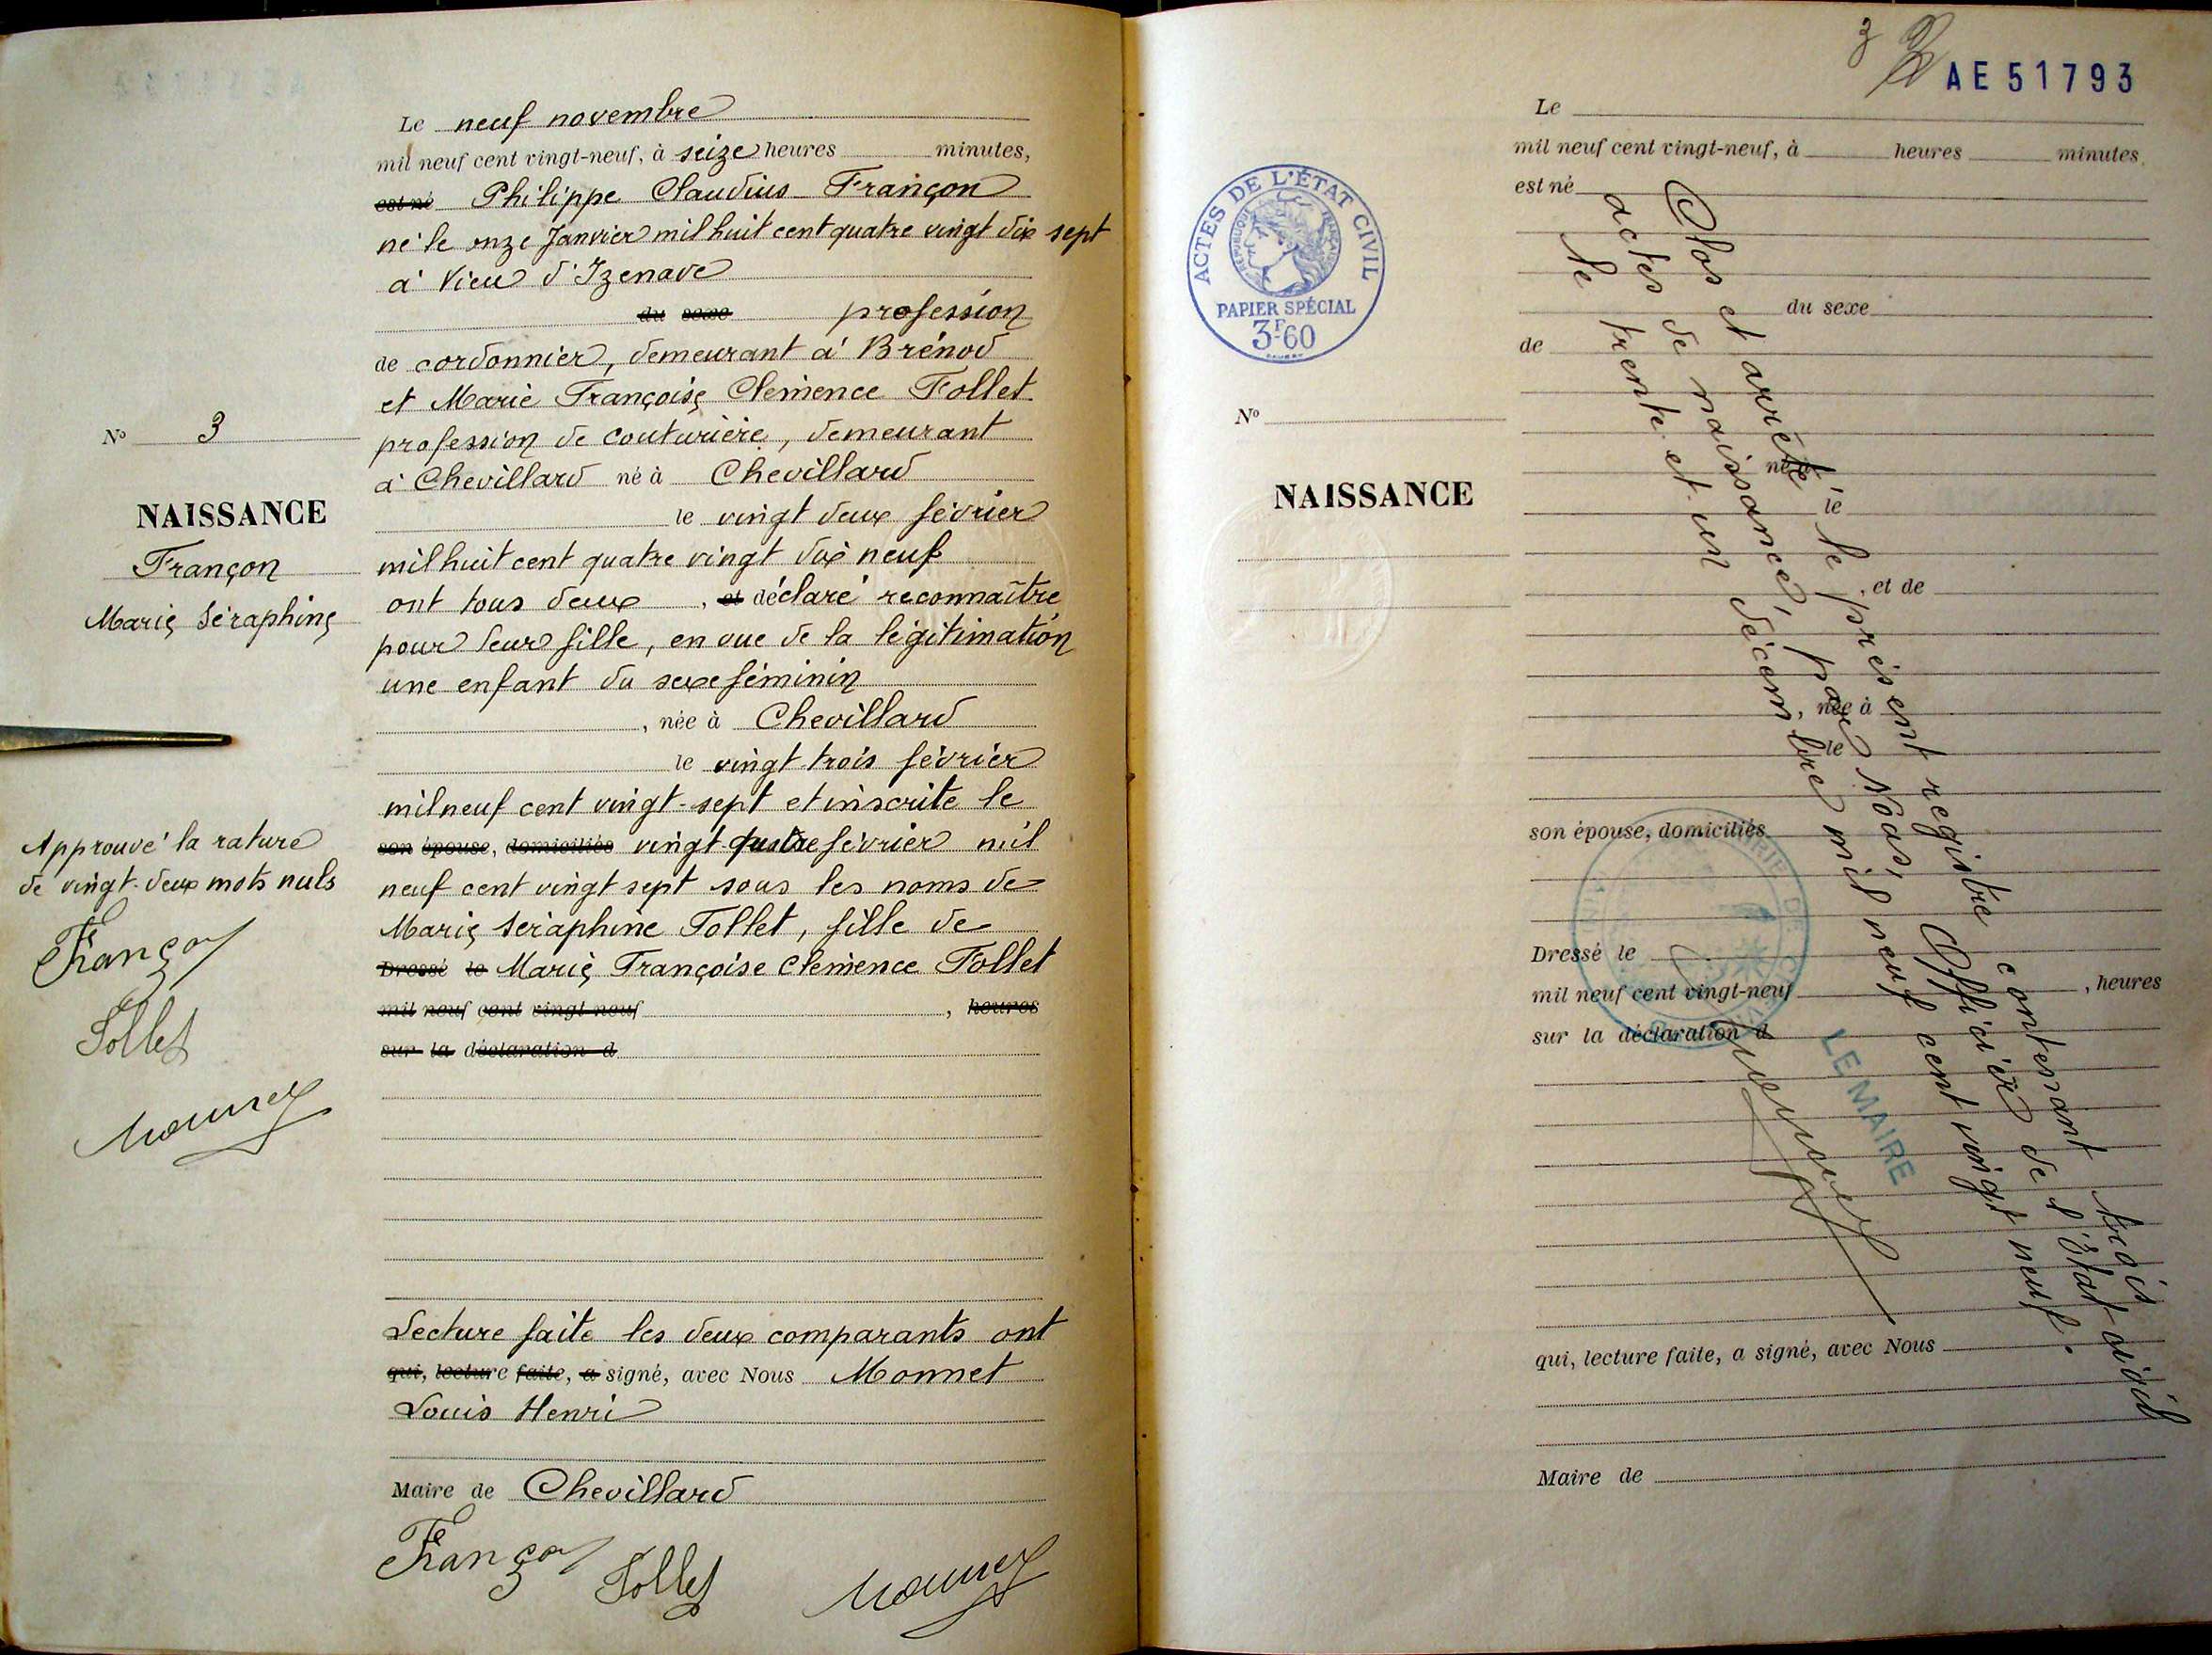 Le neuf novembre
mil neuf cent vingt-neuf, à seize heures minutes,
est né Philippe Claudius Françon
né le onze Janvier mil huit cent quatre vingt dix sept
à Vieu d'Izenave
du sexe profession
de cordonnier, demeurant à Brénod
et Marie Françoise Clémence Follet
profession de couturière, demeurant
à Chevillard né à Chevillard
le vingt deux février
mil huit cent quatre vingt dix neuf
ont tous deux , et déclaré reconnaître
pour leur fille, en vue de la légitimation
une enfant du sexe féminin
, née à Chevillard
le vingt trois février
mil neuf cent vingt-sept et inscrite le
son épouse, domiciliés vingt quatre février mil
neuf cent vingt sept sous les noms de
Marie Séraphine Follet, fille de
Dressé le Marie Françoise Clémence Follet
mil neuf cent vingt-neuf , heures
sur la déclaration d
Lecture faite les deux comparants ont
qui, lecture faite, a signé, avec Nous Monnet
Louis Henri
Maire de Chevillard
Françon Follet Monnet
N° 3
NAISSANCE
Françon
Marie Séraphine
Approuvé la rature
de vingt-deux mots nuls
Françon
Follet
Monnet
3
AE51793
ACTES DE L'ÉTAT CIVIL
RÉPUBLIQUE FRANÇAISE
PAPIER SPÉCIAL
3F60
N°
NAISSANCE
Le
mil neuf cent vingt-neuf, à heures minutes,
est né
du sexe
de
né à
le
, et de
, née à
le
son épouse, domiciliés
Dressé le
mil neuf cent vingt-neuf , heures
sur la déclaration d
qui, lecture faite, a signé, avec Nous
Maire de
Clos et arrêté le présent registre contenant trois
actes de naissance, par Nous, Officier de l'État civil
le trente et un décembre mil neuf cent vingt neuf.
LE MAIRE